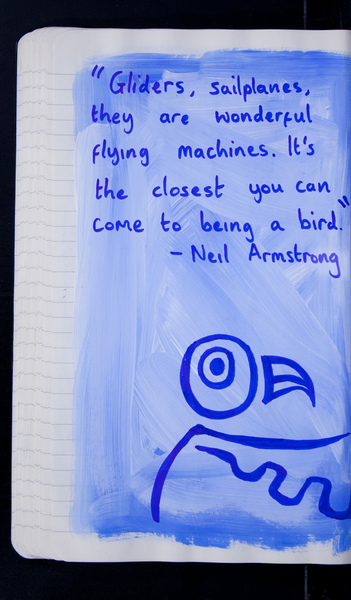 "Gliders, sailplanes,
they are wonderful
flying machines. It's
the closest you can
come to being a bird."
- Neil Armstrong